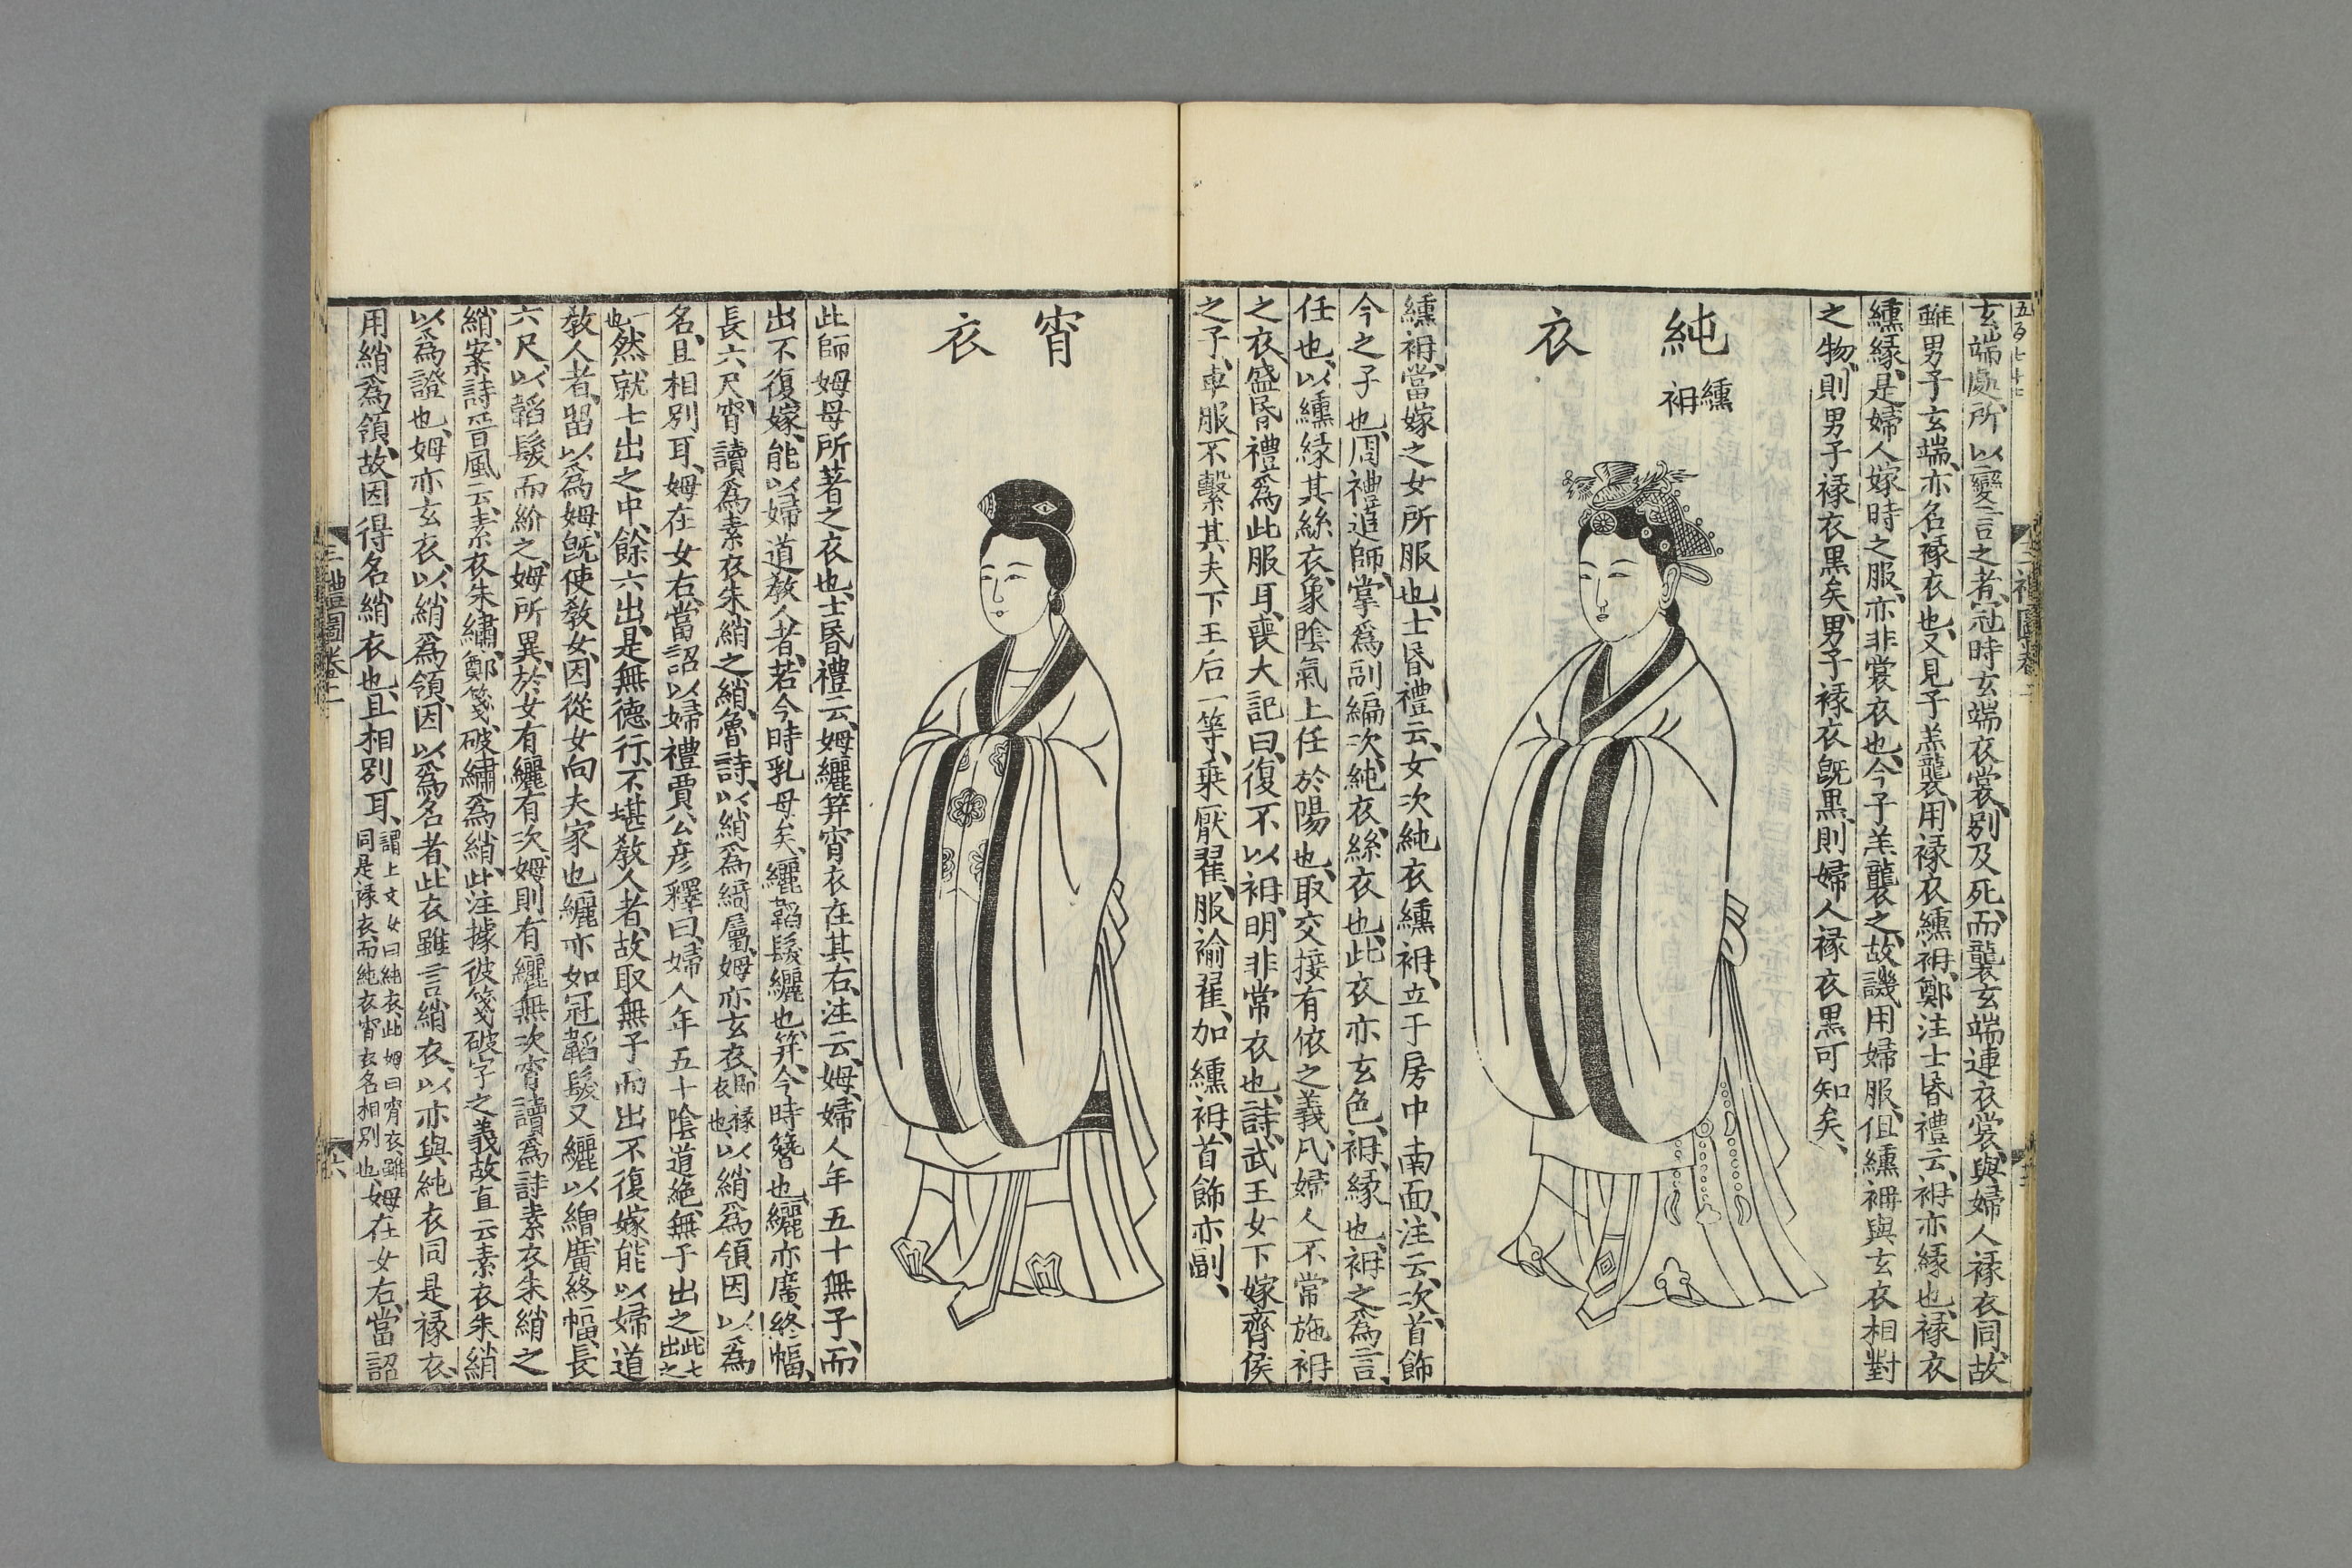 玄端處所以變言之者冠時玄端衣裳別及死而襲玄端連衣裳與婦人褖衣同故
雖男子玄端亦名褖衣也又見子羔襲用褖衣纁袡鄭注士昏禮云袡亦緣也褖衣
纁緣是婦人嫁時之服亦非裳衣也今子羔襲之故譏用婦服但纁袡與玄衣相對
之物則男子褖衣黑矣男子褖衣旣黑則婦人褖衣黑可知矣
純衣
纁袡
纁袡當嫁之女所服也士昏禮云女次純衣纁袡立于房中南面注云次首飾
今之子也周禮追師掌爲副編次純衣絲衣也此衣亦玄色袡緣也袡之爲言
任也以纁緣其絲衣象陰氣上任於陽也取交接有依之義凡婦人不常施袡
之衣盛昏禮爲此服耳喪大記曰復不以袡明非常衣也詩武王女下嫁齊侯
之子車服不繫其夫下王后一等乗厭翟服褕翟加纁袡首飾亦副
宵衣
此師姆母所著之衣也士昏禮云姆纚笄宵衣在其右注云姆婦人年五十無子而
出不復嫁能以婦道敎人者若今時乳母矣纚韜髮纚也笄今時簪也纚亦廣終幅
長六尺宵讀爲素衣朱綃之綃魯詩以綃爲綺屬姆亦玄衣即褖衣也以綃爲領因以爲
名且相別耳姆在女右當詔以婦禮賈公彦釋曰婦人年五十陰道絶無子出之此七出之
一也然就七出之中餘六出是無德行不堪敎人者故取無子而出不復嫁能以婦道
敎人者留以爲姆旣使敎女因從女向夫家也纚亦如冠韜髮又纚以繒廣終幅長
六尺以韜髮而紒之姆所異於女有纚有次姆則有纚無次宵讀爲詩素衣朱綃之
綃案詩晉風云素衣朱繡鄭箋破繡爲綃此注據彼箋破字之義故直云素衣朱綃
以爲證也姆亦玄衣以綃爲領因以爲名者此衣雖言綃衣以亦與純衣同是褖衣
用綃爲領故因得名綃衣也且相別耳謂上文女曰純衣此姆曰宵衣雖同是褖衣而純衣宵衣名相別也姆在女右當詔
三禮圖卷二
六